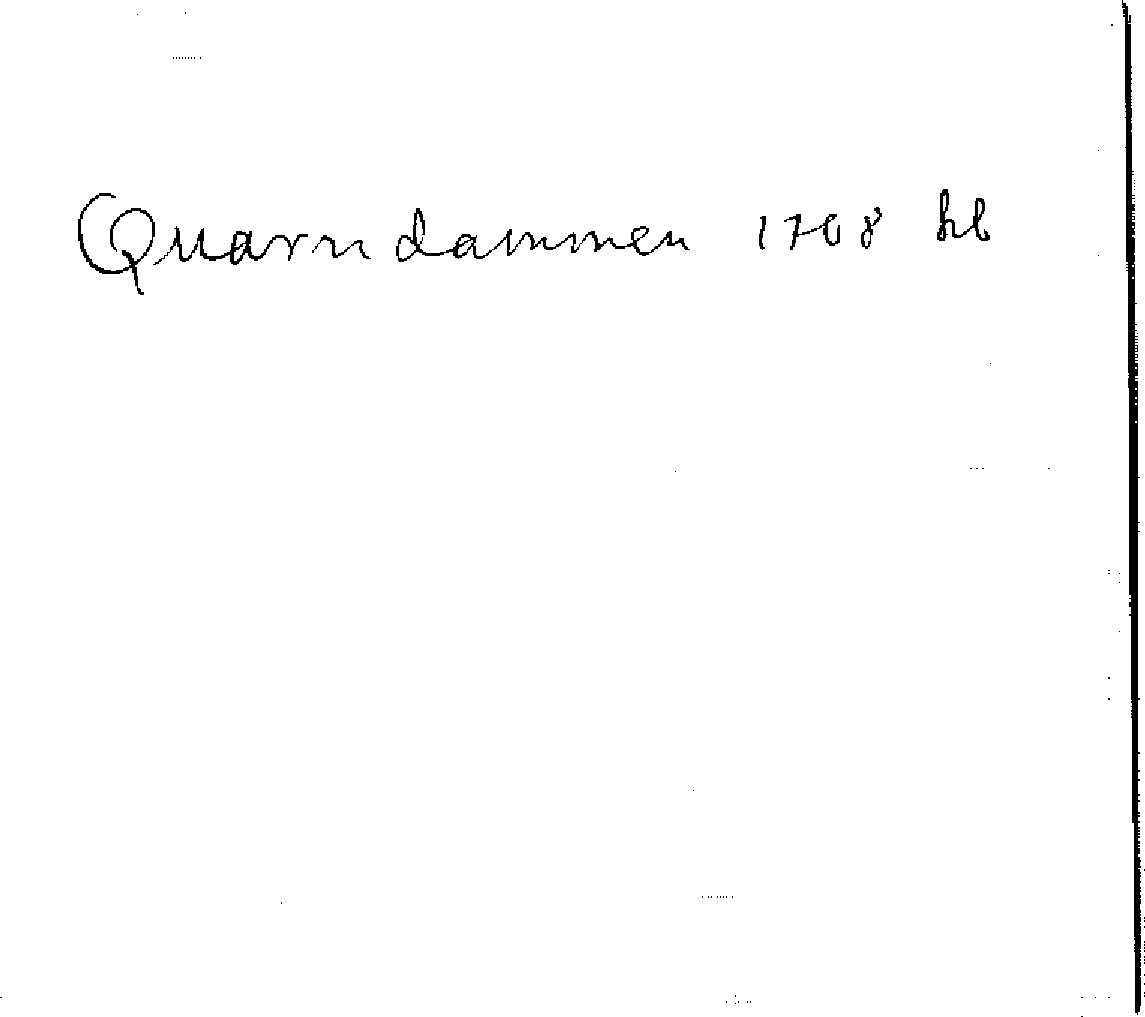 Quarndammen 1708 hb